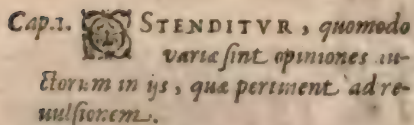 Cap.1. OSTENDITVR, quomodo
variæ sint opiniones au-
ctorum in ijs, quæ pertinent ad re-
uulsionem.